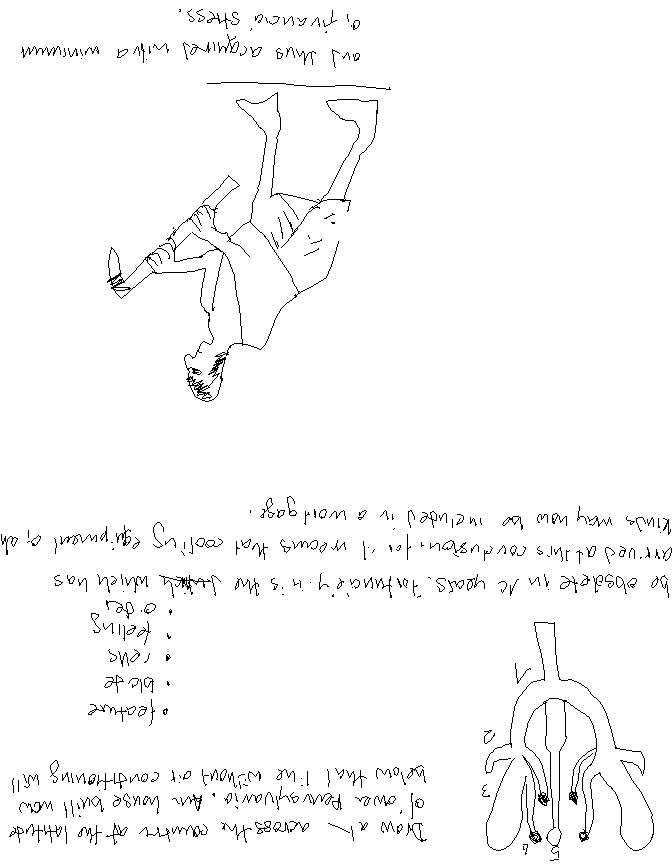 Draw a across the country at the latitude
of over Pennsylvania. house built now
below that line without air conditioning will
5
4
3
2
1
• feature
• blade
•
• feeling
• order
be obsolete in years. Fortunately it is the which has
arrived at this conclusion, for it means that cooling equipment of all
kinds may now be included in a mortgage.
and thus acquired with a minimum
of financial stress.